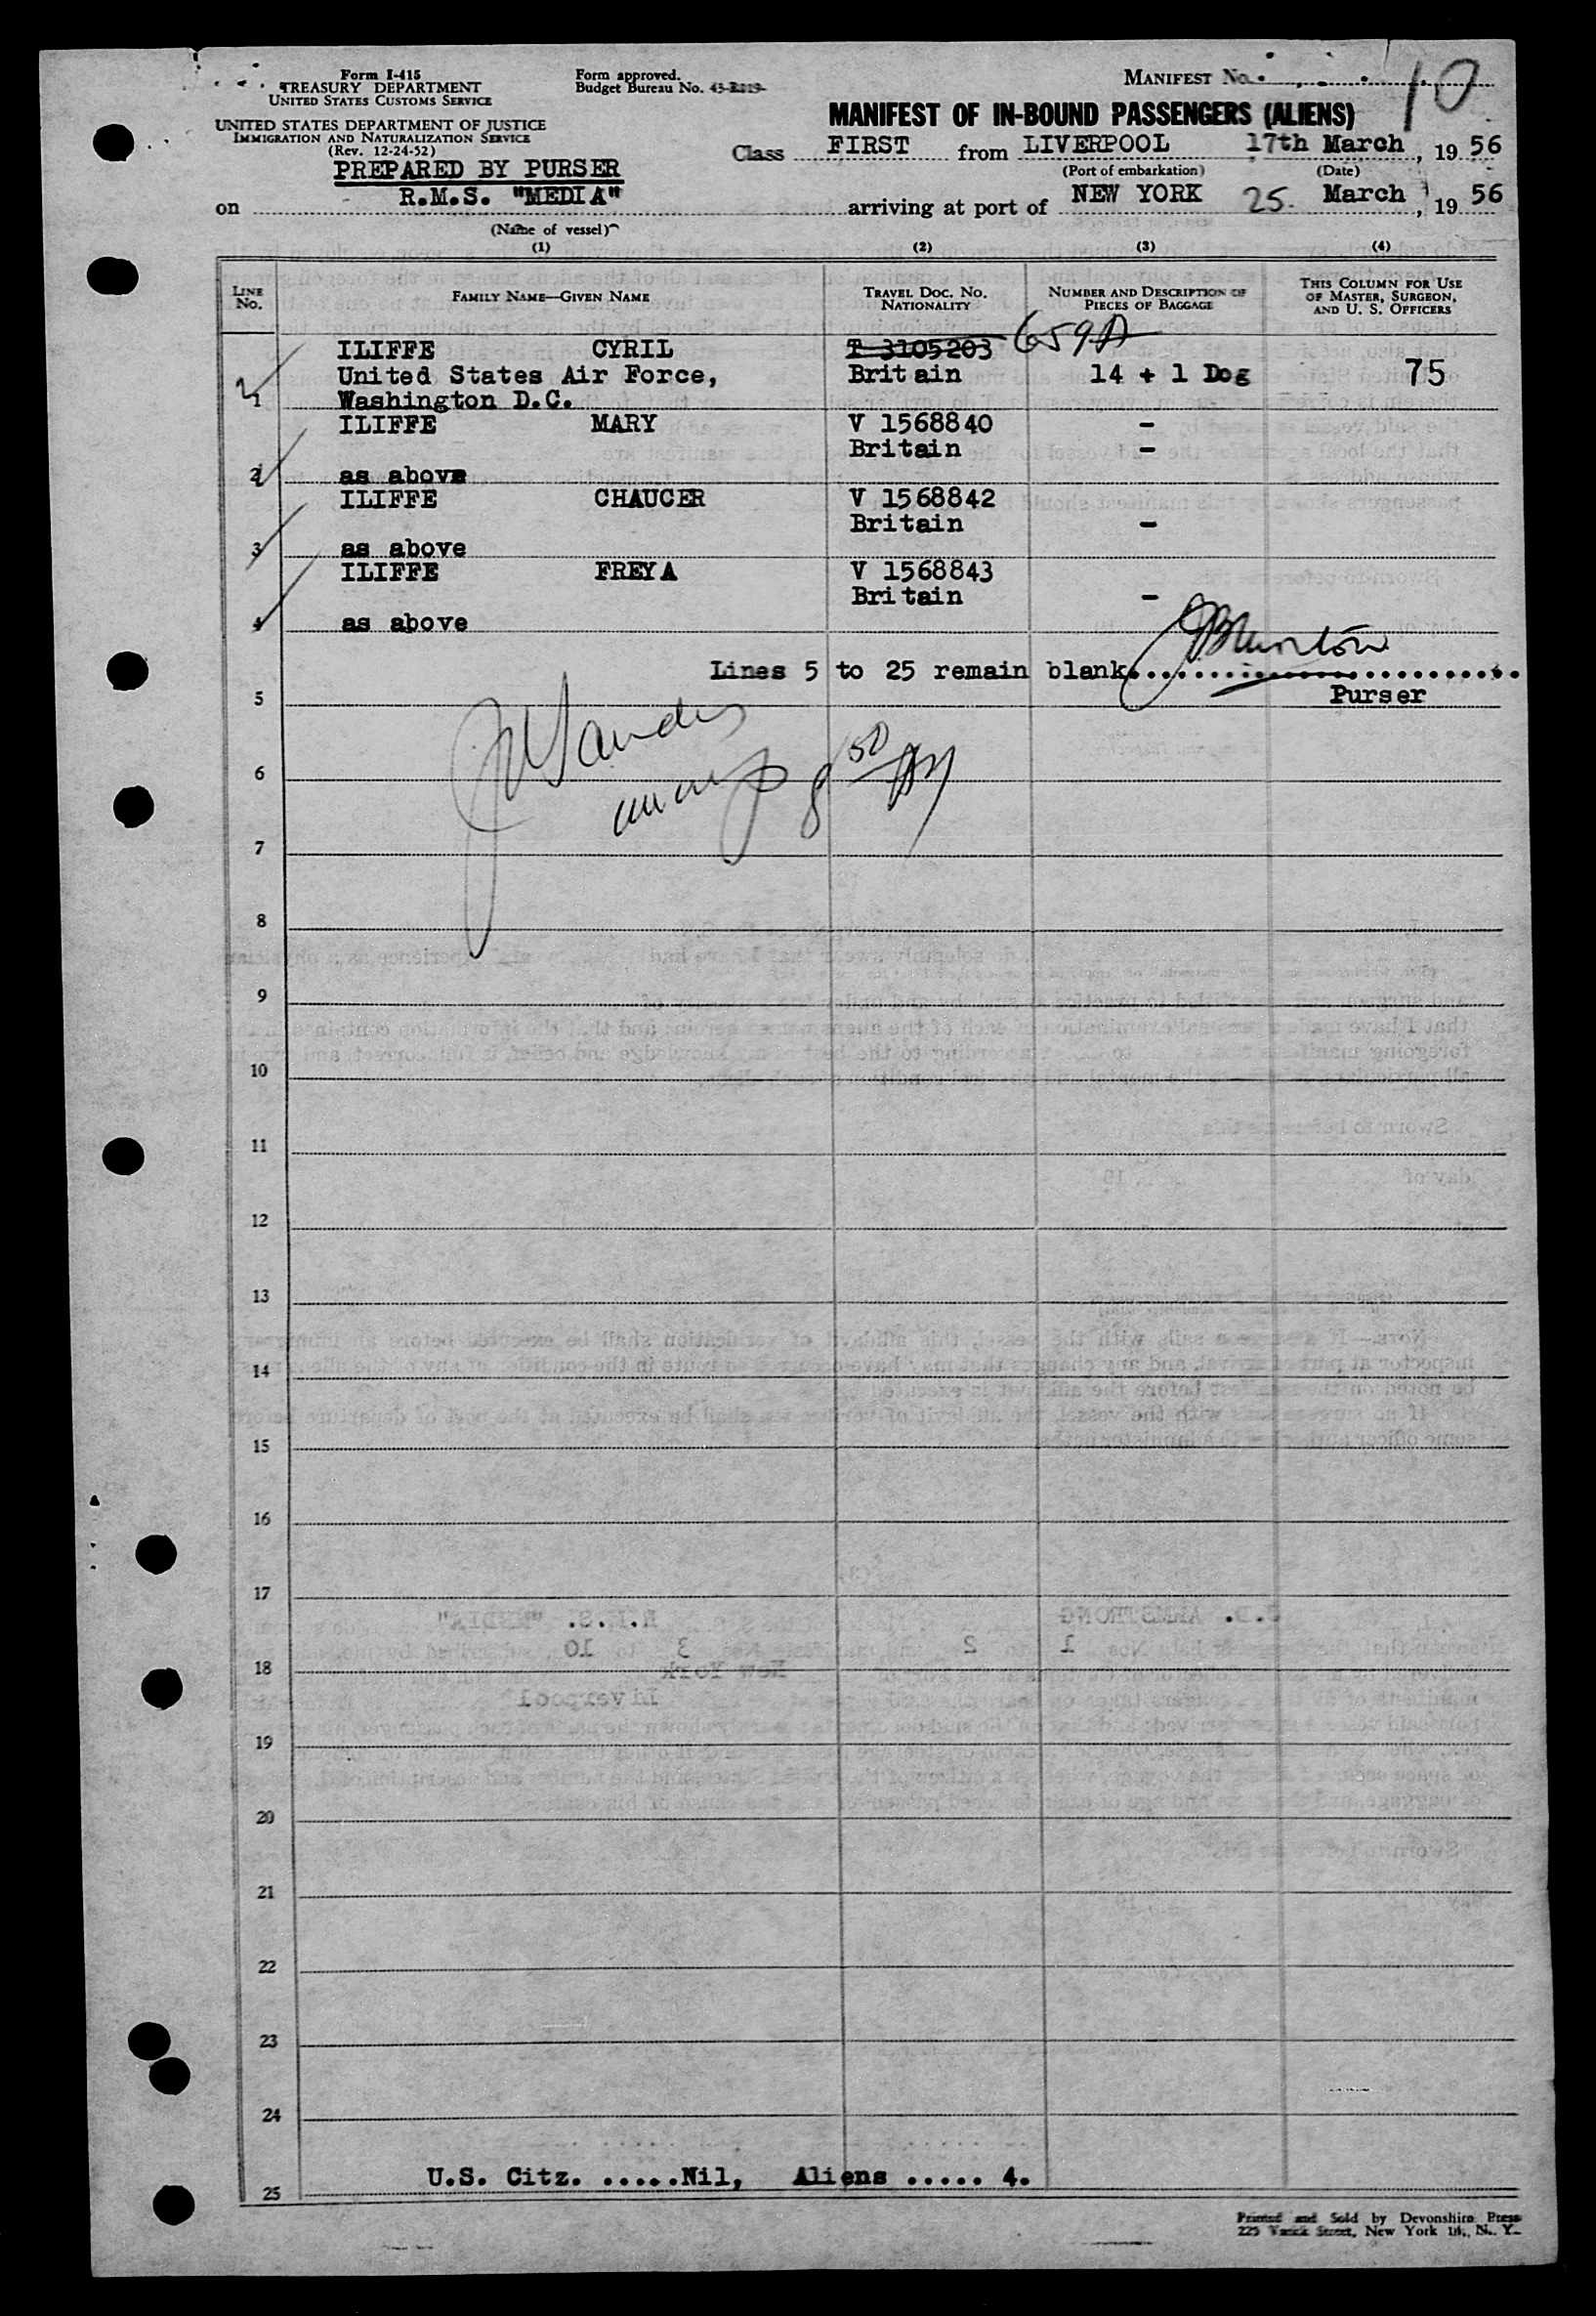 Form I-415
TREASURY DEPARTMENT
UNITED STATES CUSTOMS SERVICE
Form approved.
Budget Bureau No.
MANIFEST No. 10
UNITED STATES DEPARTMENT OF JUSTICE
IMMIGRATION AND NATURALIZATION SERVICE
(Rev. 12-24-52)
MANIFEST OF IN-BOUND PASSENGERS (ALIENS)
Class FIRST from LIVERPOOL 17th March, 19 56
(Port of embarkation) (Date)
PREPARED BY PURSER
on R.M.S. "MEDIA" arriving at port of NEW YORK 25. March, 19 56
(Name of vessel)
(1) (2) (3) (4)
LINE No. FAMILY NAME—GIVEN NAME TRAVEL DOC. No. NATIONALITY NUMBER AND DESCRIPTION OF PIECES OF BAGGAGE THIS COLUMN FOR USE OF MASTER, SURGEON, AND U. S. OFFICERS
ILIFFE CYRIL T 3105203 659A
United States Air Force, Britain 14 + 1 Dog 75
1 Washington D.C.
ILIFFE MARY V 1568840 -
Britain -
2 as above
ILIFFE CHAUCER V 1568842
Britain -
3 as above
ILIFFE FREYA V 1568843
Britain -
4 as above
Lines 5 to 25 remain blank..........................
5 Purser
6
7
8
9
10
11
12
13
14
15
16
17
18
19
20
21
22
23
24
U.S. Citz. .....Nil, Aliens ..... 4.
25
Printed and Sold by Devonshire Press
225 Varick Street, New York 14, N. Y.